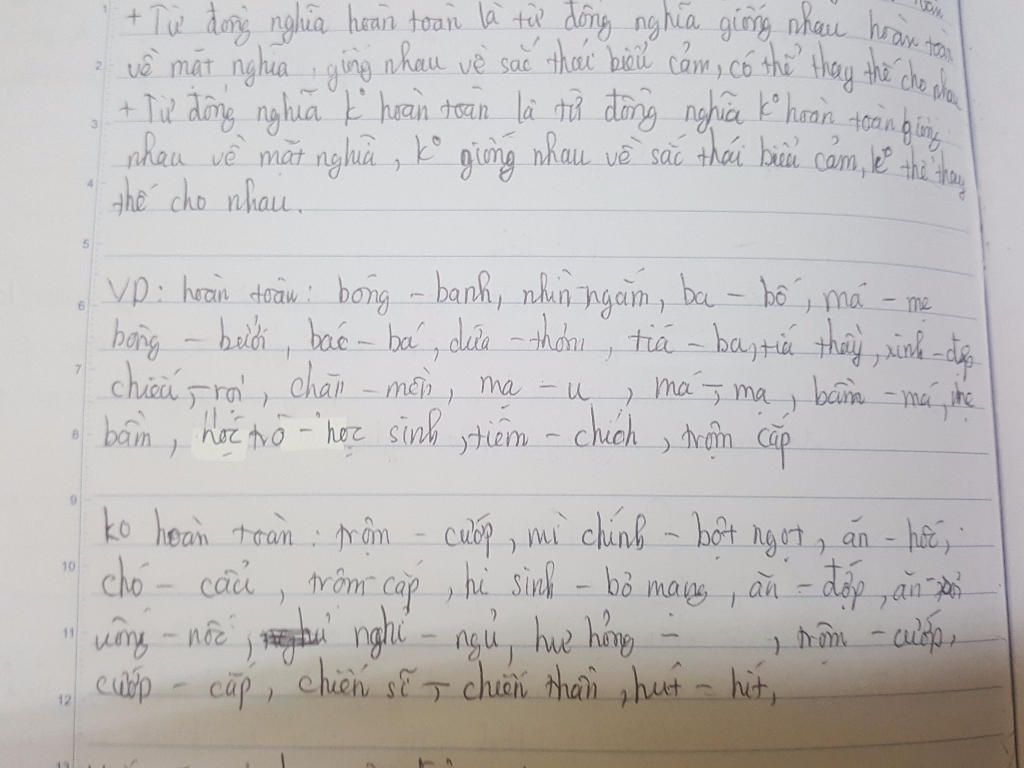 + Từ đồng nghĩa hoàn toàn là từ đồng nghĩa giống nhau hoàn toàn
về mặt nghĩa, giống nhau về sắc thái biểu cảm, có thể thay thế cho nhau
+ Từ đồng nghĩa k° hoàn toàn là từ đồng nghĩa k° hoàn toàn giống
nhau về mặt nghĩa, k° giống nhau về sắc thái biểu cảm, k° thể thay
thế cho nhau.
VD: hoàn toàn: bóng - banh, nhìn - ngắm, ba - bố, má - mẹ
bòng - bưởi, bác - bá, dứa - thơm, tía - ba, tía thầy, xinh - đẹp
chiếu, - rọi, chăn - mền, ma - u, má - mạ, bầm - má, mẹ
bầm, học trò - học sinh, tiêm - chích, trộm cắp
ko hoàn toàn: trộm - cướp, mì chính - bột ngọt, ăn - hốc,
chó - cẩu, trộm - cắp, hi sinh - bỏ mạng, ăn - đớp, ăn -
uống - nốc, nghỉ - ngủ, hư hỏng - , trộm - cướp,
cướp - cắp, chiến sĩ - chiến thần, hút - hít,